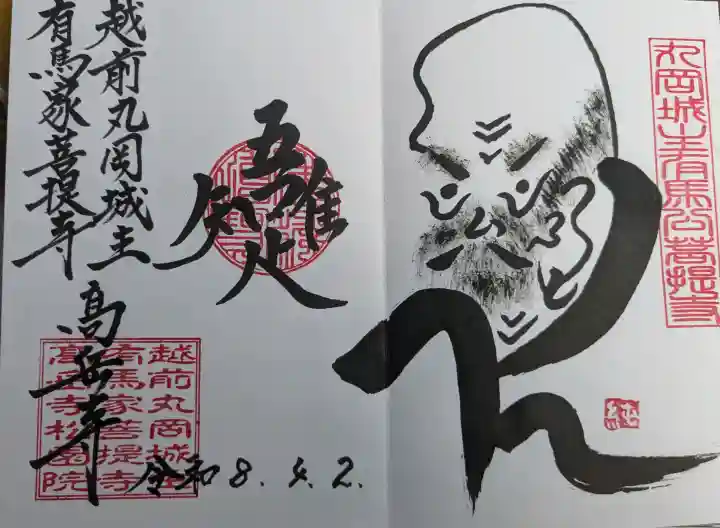 丸岡城主有馬公菩提寺
純
吾唯足知
越前丸岡城主
有馬家菩提寺
高岳寺
越前丸岡城主
有馬家菩提寺
高岳寺松園院
令和8.4.2.